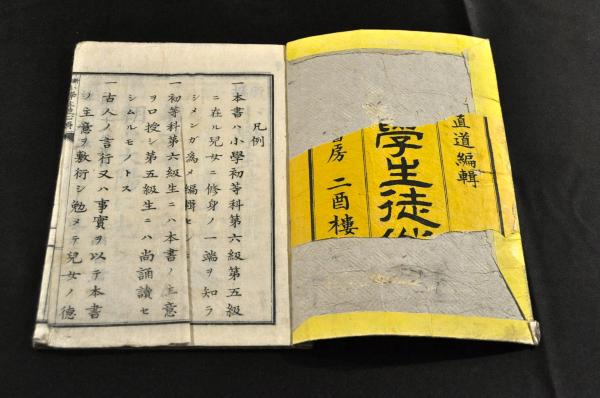 直道編輯
學生徒
房 二酉樓
凡例
一本書ハ小學初等科第六級第五級
ニ在ル兒女ニ修身ノ一端ヲ知ラ
シメンガ為メ編輯セシ
一初等科第六級生ニハ本書ノ主意
ヲ口授シ第五級生ニハ尚誦讀セ
シムルモノトス
一古人ノ言行又ハ事實ヲ以テ本書
ノ主意ヲ敷衍シ勉メテ兒女ノ德